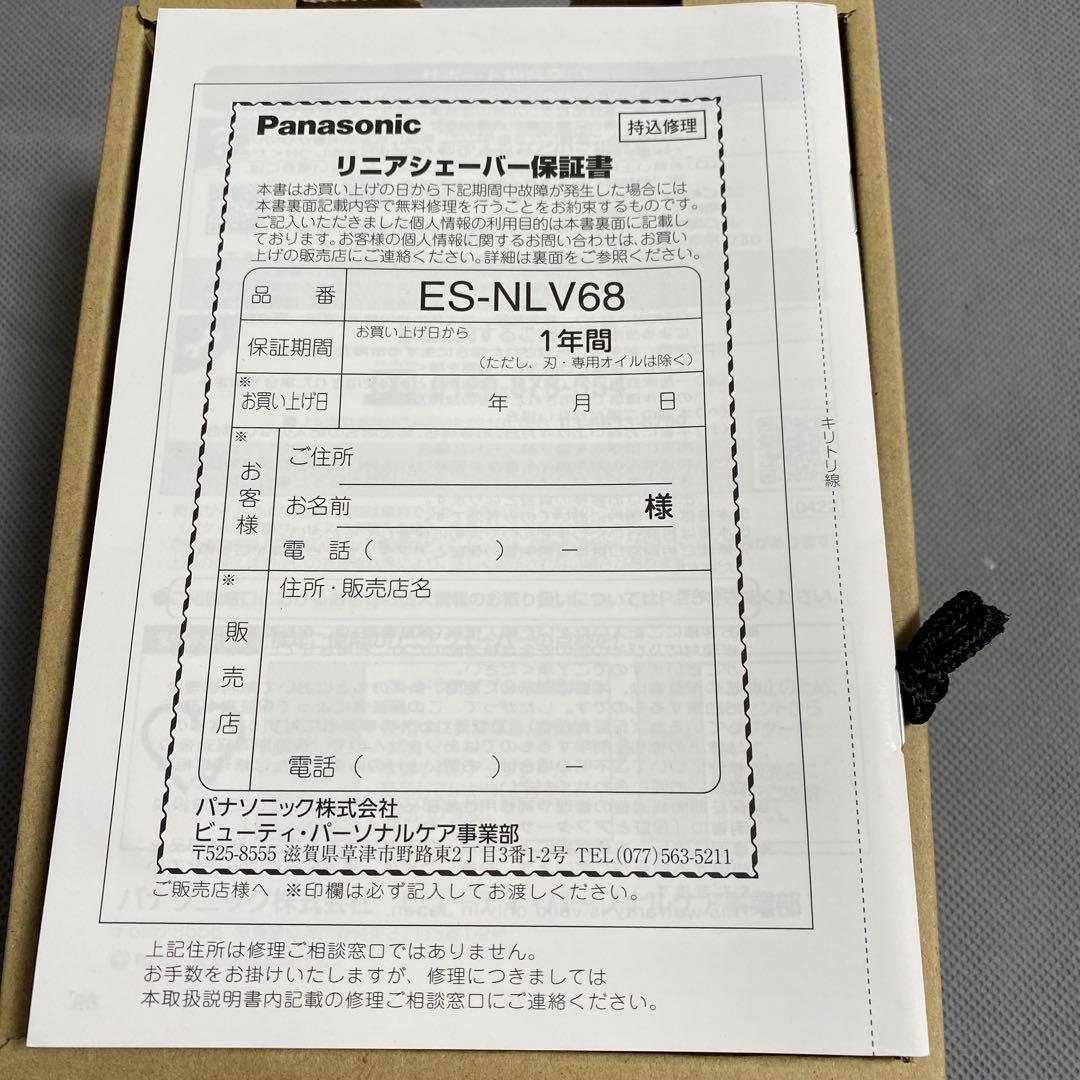 Panasonic
持込修理
リニアシェーバー保証書
本書はお買い上げの日から下記期間中故障が発生した場合には
本書裏面記載内容で無料修理を行うことをお約束するものです。
ご記入いただきました個人情報の利用目的は本書裏面に記載し
ております。お客様の個人情報に関するお問い合わせは、お買い
上げの販売店にご連絡ください。詳細は裏面をご参照ください。
品 番 ES-NLV68
保証期間 お買い上げ日から 1年間
(ただし、刃・専用オイルは除く)
※お買い上げ日 年 月 日
※お客様
ご住所
お名前 様
電 話( ) ー
※販売店
住所・販売店名
電話( ) ー
パナソニック株式会社
ビューティ・パーソナルケア事業部
〒525-8555 滋賀県草津市野路東2丁目3番1-2号 TEL(077)563-5211
ご販売店様へ ※印欄は必ず記入してお渡しください。
上記住所は修理ご相談窓口ではありません。
お手数をお掛けいたしますが、修理につきましては
本取扱説明書内記載の修理ご相談窓口にご連絡ください。
キリトリ線